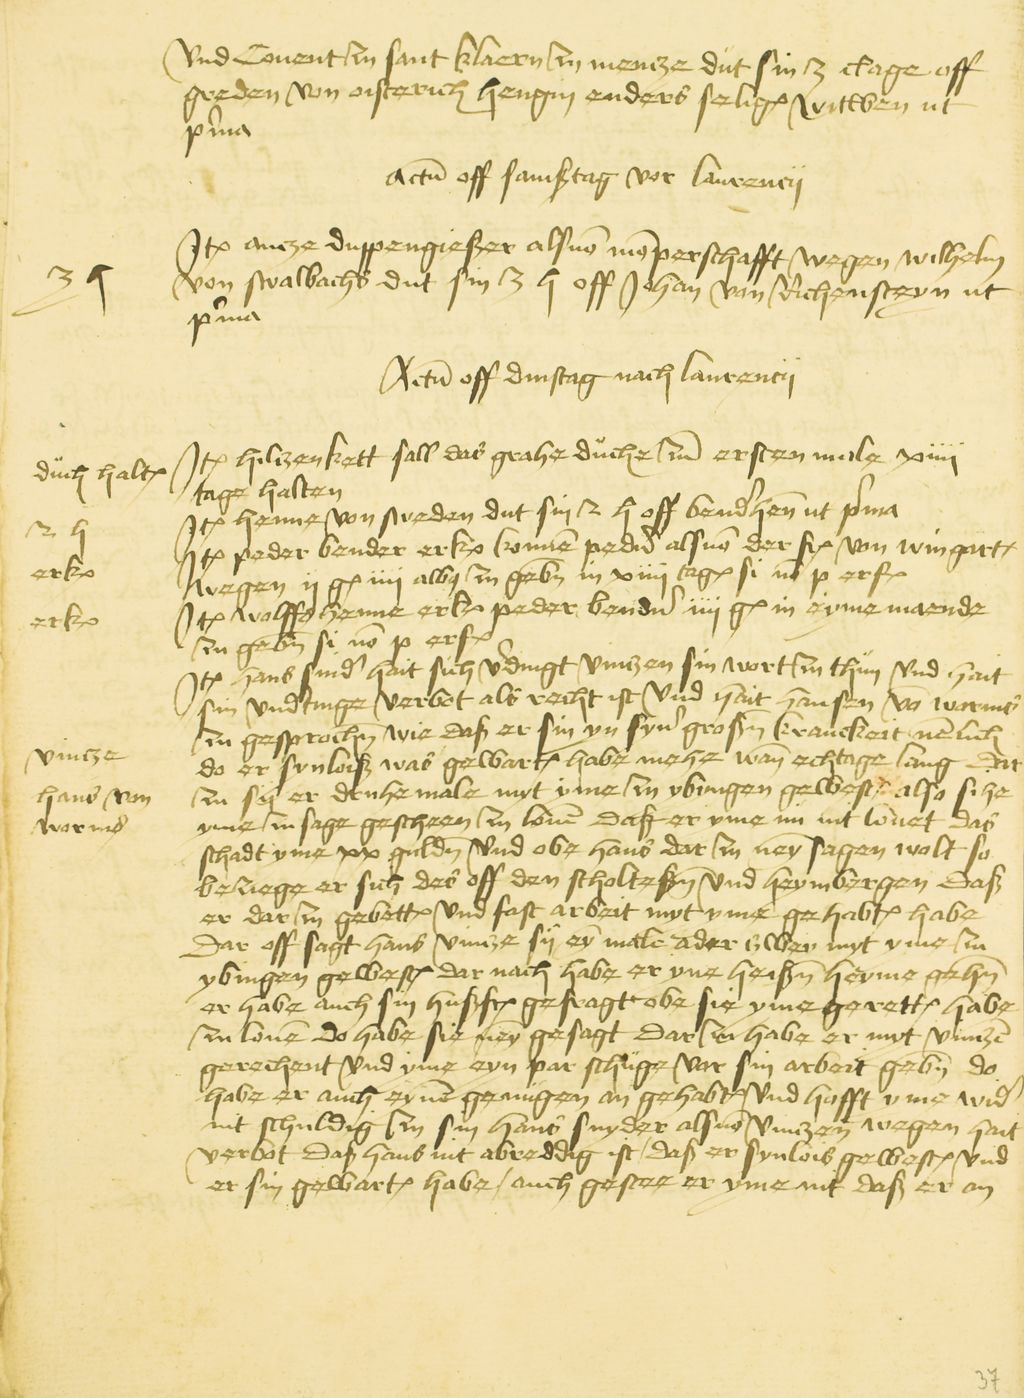 Vnd Conent zu sant klaern zu mencze dut sin 3 clage off
greden von oisterich hengin enders selig witwen ut
prima
Actu off samßtag vor laurencij
It ancze duppengießer als momperschafft wegen wilhelm
3 h
von swalbachs dut sin 3 h off Johan von Richensteyn ut
prima
Actu off dinstag nach laurencij
duch halt
It hilczenkett sall das grahe duche zum ersten male xiiii
tage halten
2 h
It henne von sweden dut sin 2 h off bender hen ut prima
erk
It peder bender erk konne peder als der von wingart
wegen ij g iiii alb zu geben in xiiii tag si no p erf
erk
It wolffs henne erk peder bender iiii g in eyme maende
zu geben si no p erf
It hans snider hait sich verdingt vinczen sin wort zu thun vnd hait
sin vnderdinge verbot als recht ist vnd hait hansen von worms
zu gesprochen wie daß er sin yn syner großen kranckeit nemlich
vincze
do er synloiß was gewart habe mehe wan echtage lang Dar
hans von
zu sij er druhe male myt yme zu ybingen gewest also sihe
worms
yme zu sage gescheen zu lonen Daß er yme nu nit lonet das
schadt yme xx gulden vnd obe hans dar zu ney sagen wolt so
beziege er sich des off den scholteßen vnd heymbergen Daß
er dar zu gebett vnd fast arbeit myt yme gehabt habe
Dar off sagt hans vincze sij ey male ader zwey myt yme zu
ybingen gewest dar nach habe er yne heißen heyme gehen
er habe auch sin hußfr gefragt obe sie yme gerett habe
zu lone do habe sie ney gesagt Dar zu habe er myt vinczen
gerechent vnd yme eyn par schuge vor sin arbeit geben do
habe er auch eynen genugen an gehabt vnd hofft yme wider
nit schuldig zu sin hans snyder als vinczen wegen hait
verbot Daß hans nit abreddig ist / daß er synlois gewest vnd
er sin gewart habe / auch gestee er yme nit daß er an
37